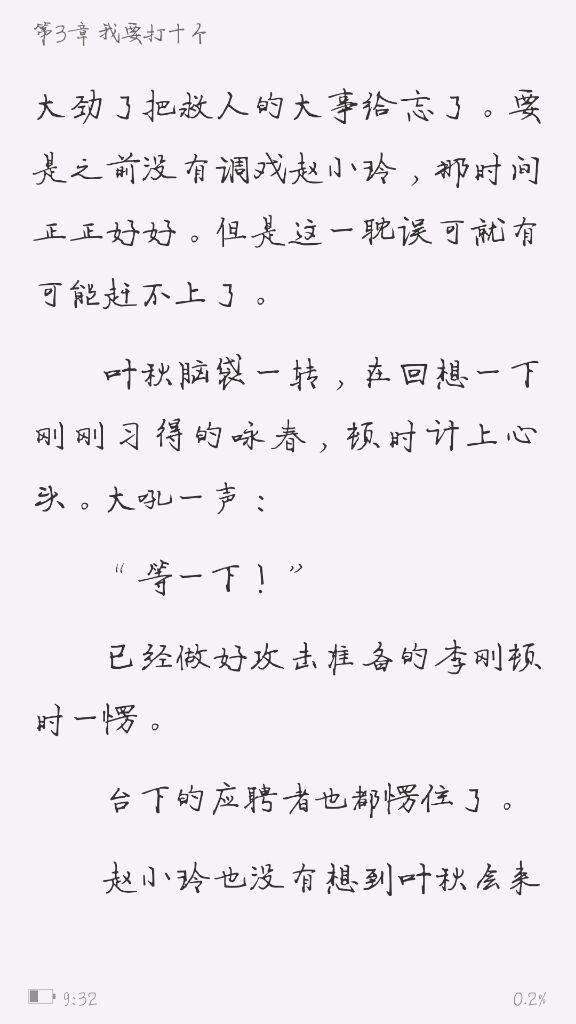 第3章 我要打十个
大劲了把救人的大事给忘了。要
是之前没有调戏赵小玲，那时间
正正好好。但是这一耽误可就有
可能赶不上了。
叶秋脑袋一转，在回想一下
刚刚习得的咏春，顿时计上心
头。大吼一声：
“等一下！”
已经做好攻击准备的李刚顿
时一愣。
台下的应聘者也都愣住了。
赵小玲也没有想到叶秋会来
9:32
0.2%